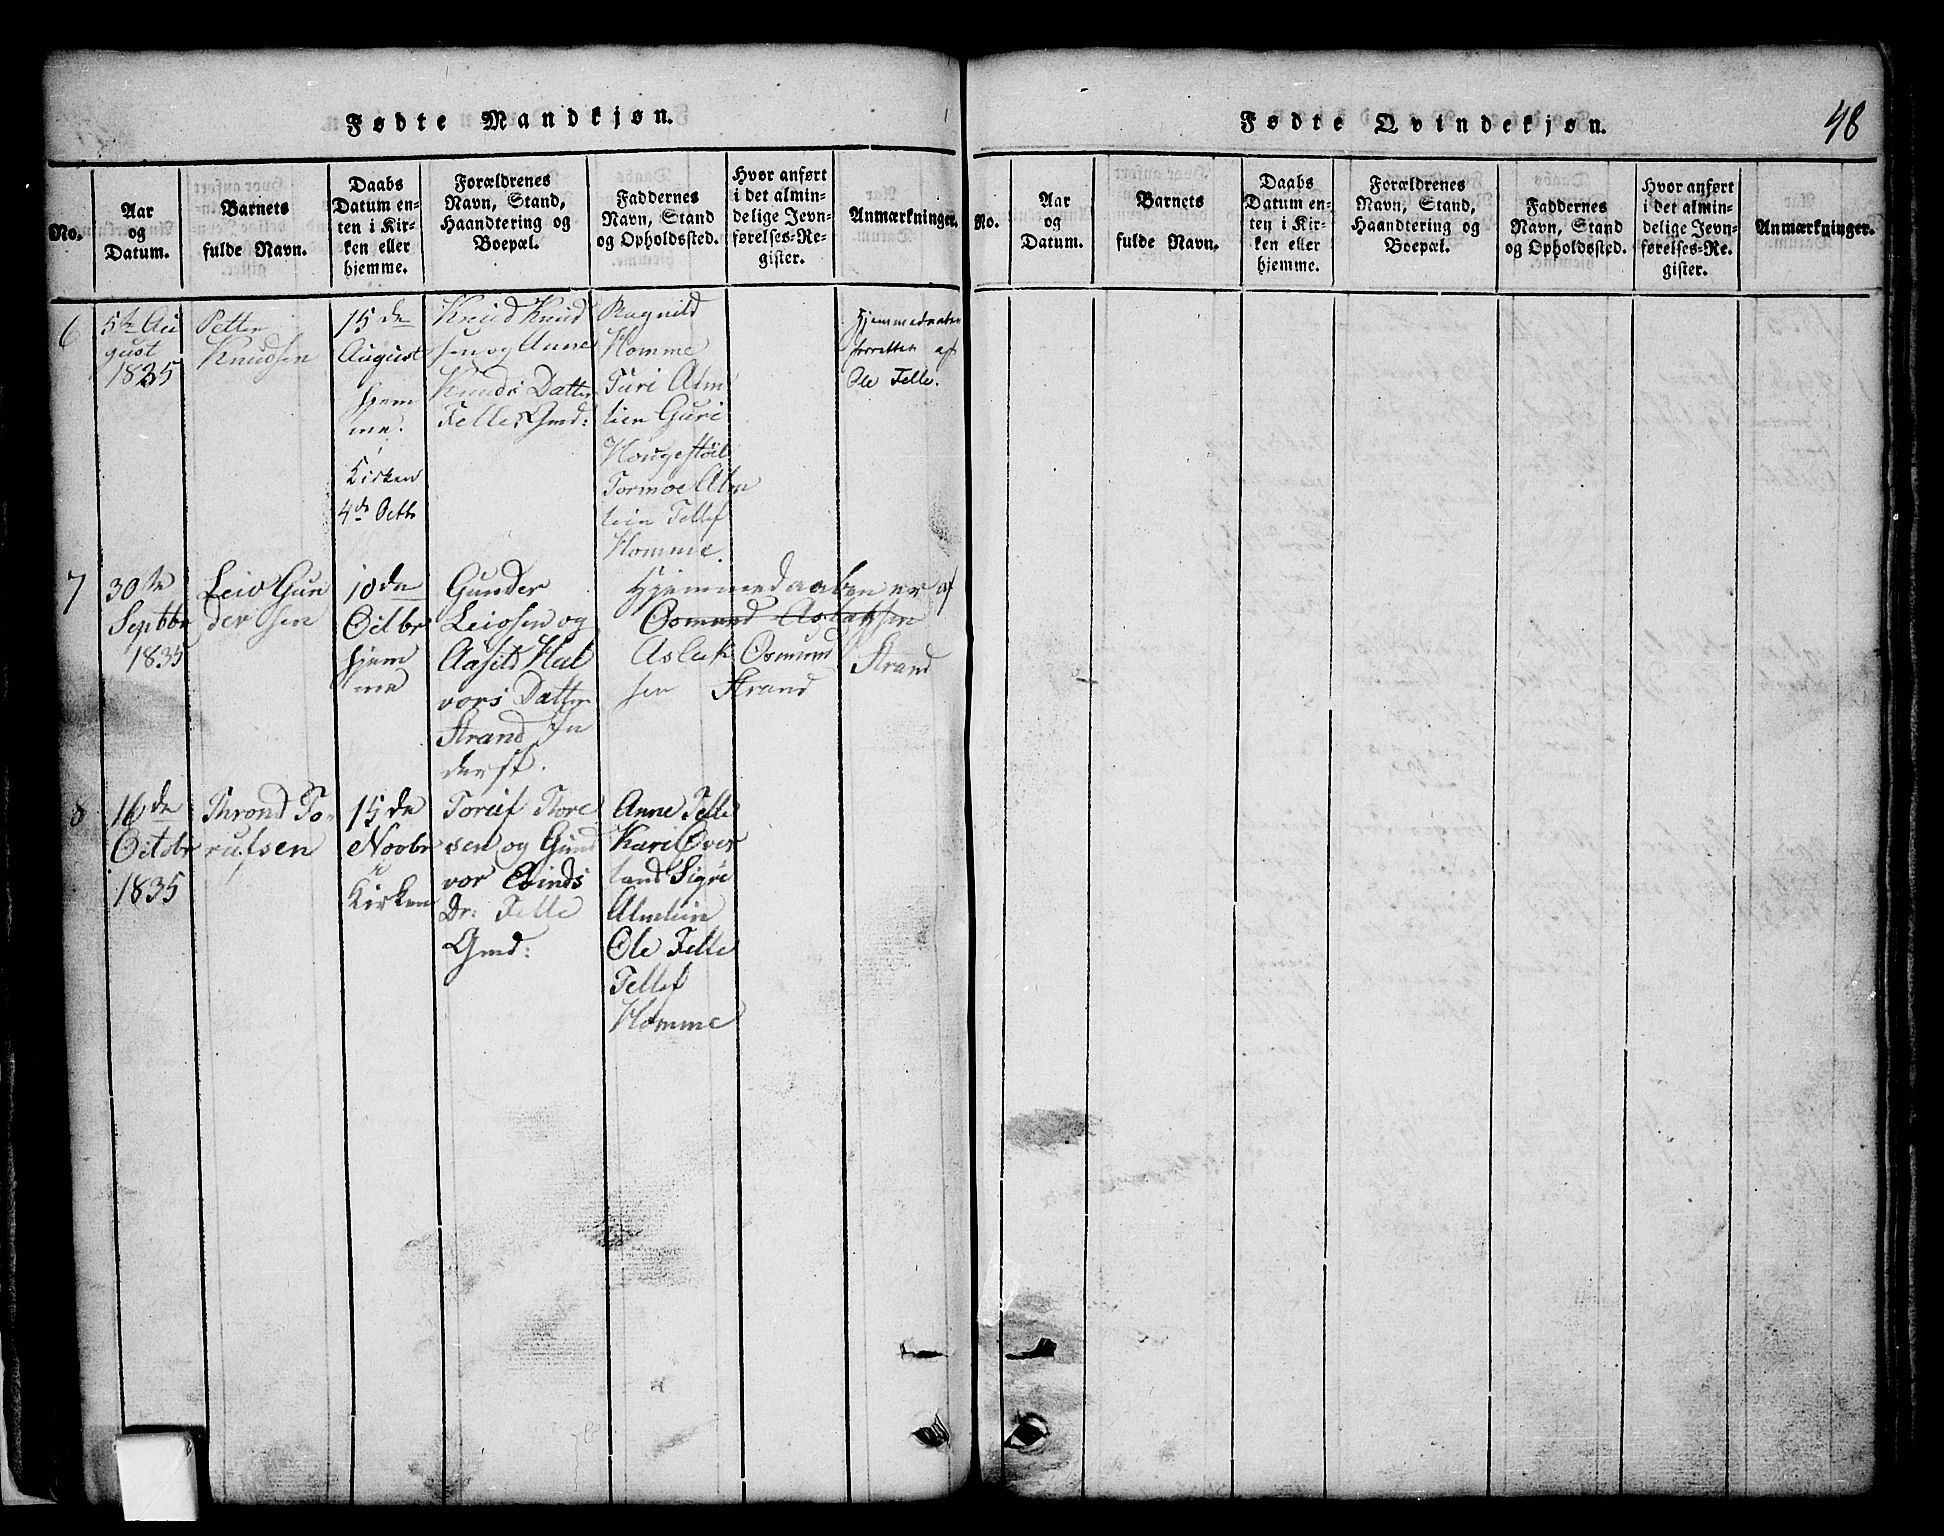 Fødte Mandkjøn.
No.
Aar
og
Datum.
Barnets
fulde Navn.
Daabs
Datum en-
ten i Kir-
ken eller
hjemme.
Forældrenes
Navn, Stand,
Haandtering og
Boepæl.
Faddernes
Navn, Stand
og Opholdssted.
Hvor anført
i det almin-
delige Jevn-
førelses-Re-
gister.
Anmærkninger.
6
5te Au
gust
1835
Petter
Knudsen
15de
August
hjem
me.
Kirken
4de Octb
Knud Knud
sen og Anne
Knuds Datter
Felle Gmd:
Ragnild
Homme
Turi Alm
lien Guri
Hougestöil
Tormoe Alm
lien Tellef
Homme.
Hjemmedaaben
forrettet af
Ole Felle.
7
30te
Septbr
1835
Leiv Gun
dersen
10de
Octbr
hjem
me
Gunder
Leivsen og
Aasild Hal
vors Datter
Strand In
derst.
Hjemmedaaben er af
Osmund Aslaksen
Aslak Osmund Strand
sen Strand
8
16de
Octobr
1835
Thrond To-
rufsen
15de
Novbr
i
Kirken
Toruf Tore
sen og Gun
vor Evinds
Dr: Felle
Gmd:
Anne Felle
Kari Over
land Sigri
Almlien
Ole Felle
Tellef
Homme
Fødte Qvindekjøn.
48
No.
Aar
og
Datum.
Barnets
fulde Navn.
Daabs
Datum en-
ten i Kir-
ken eller
hjemme.
Forældrenes
Navn, Stand,
Haandtering og
Boepæl.
Faddernes
Navn, Stand
og Opholdssted.
Hvor anført
i det almin-
delige Jevn-
førelses-Re-
gister.
Anmærkninger.